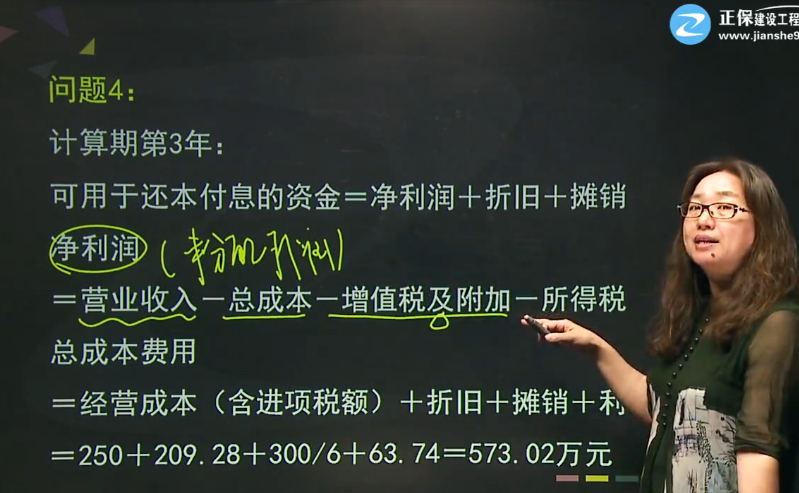 正保建设工程
www.jianshe9
问题4：
计算期第3年：
可用于还本付息的资金＝净利润＋折旧＋摊销
净利润
＝营业收入－总成本－增值税及附加－所得税
总成本费用
＝经营成本（含进项税额）＋折旧＋摊销＋利
＝250＋209.28＋300/6＋63.74＝573.02万元